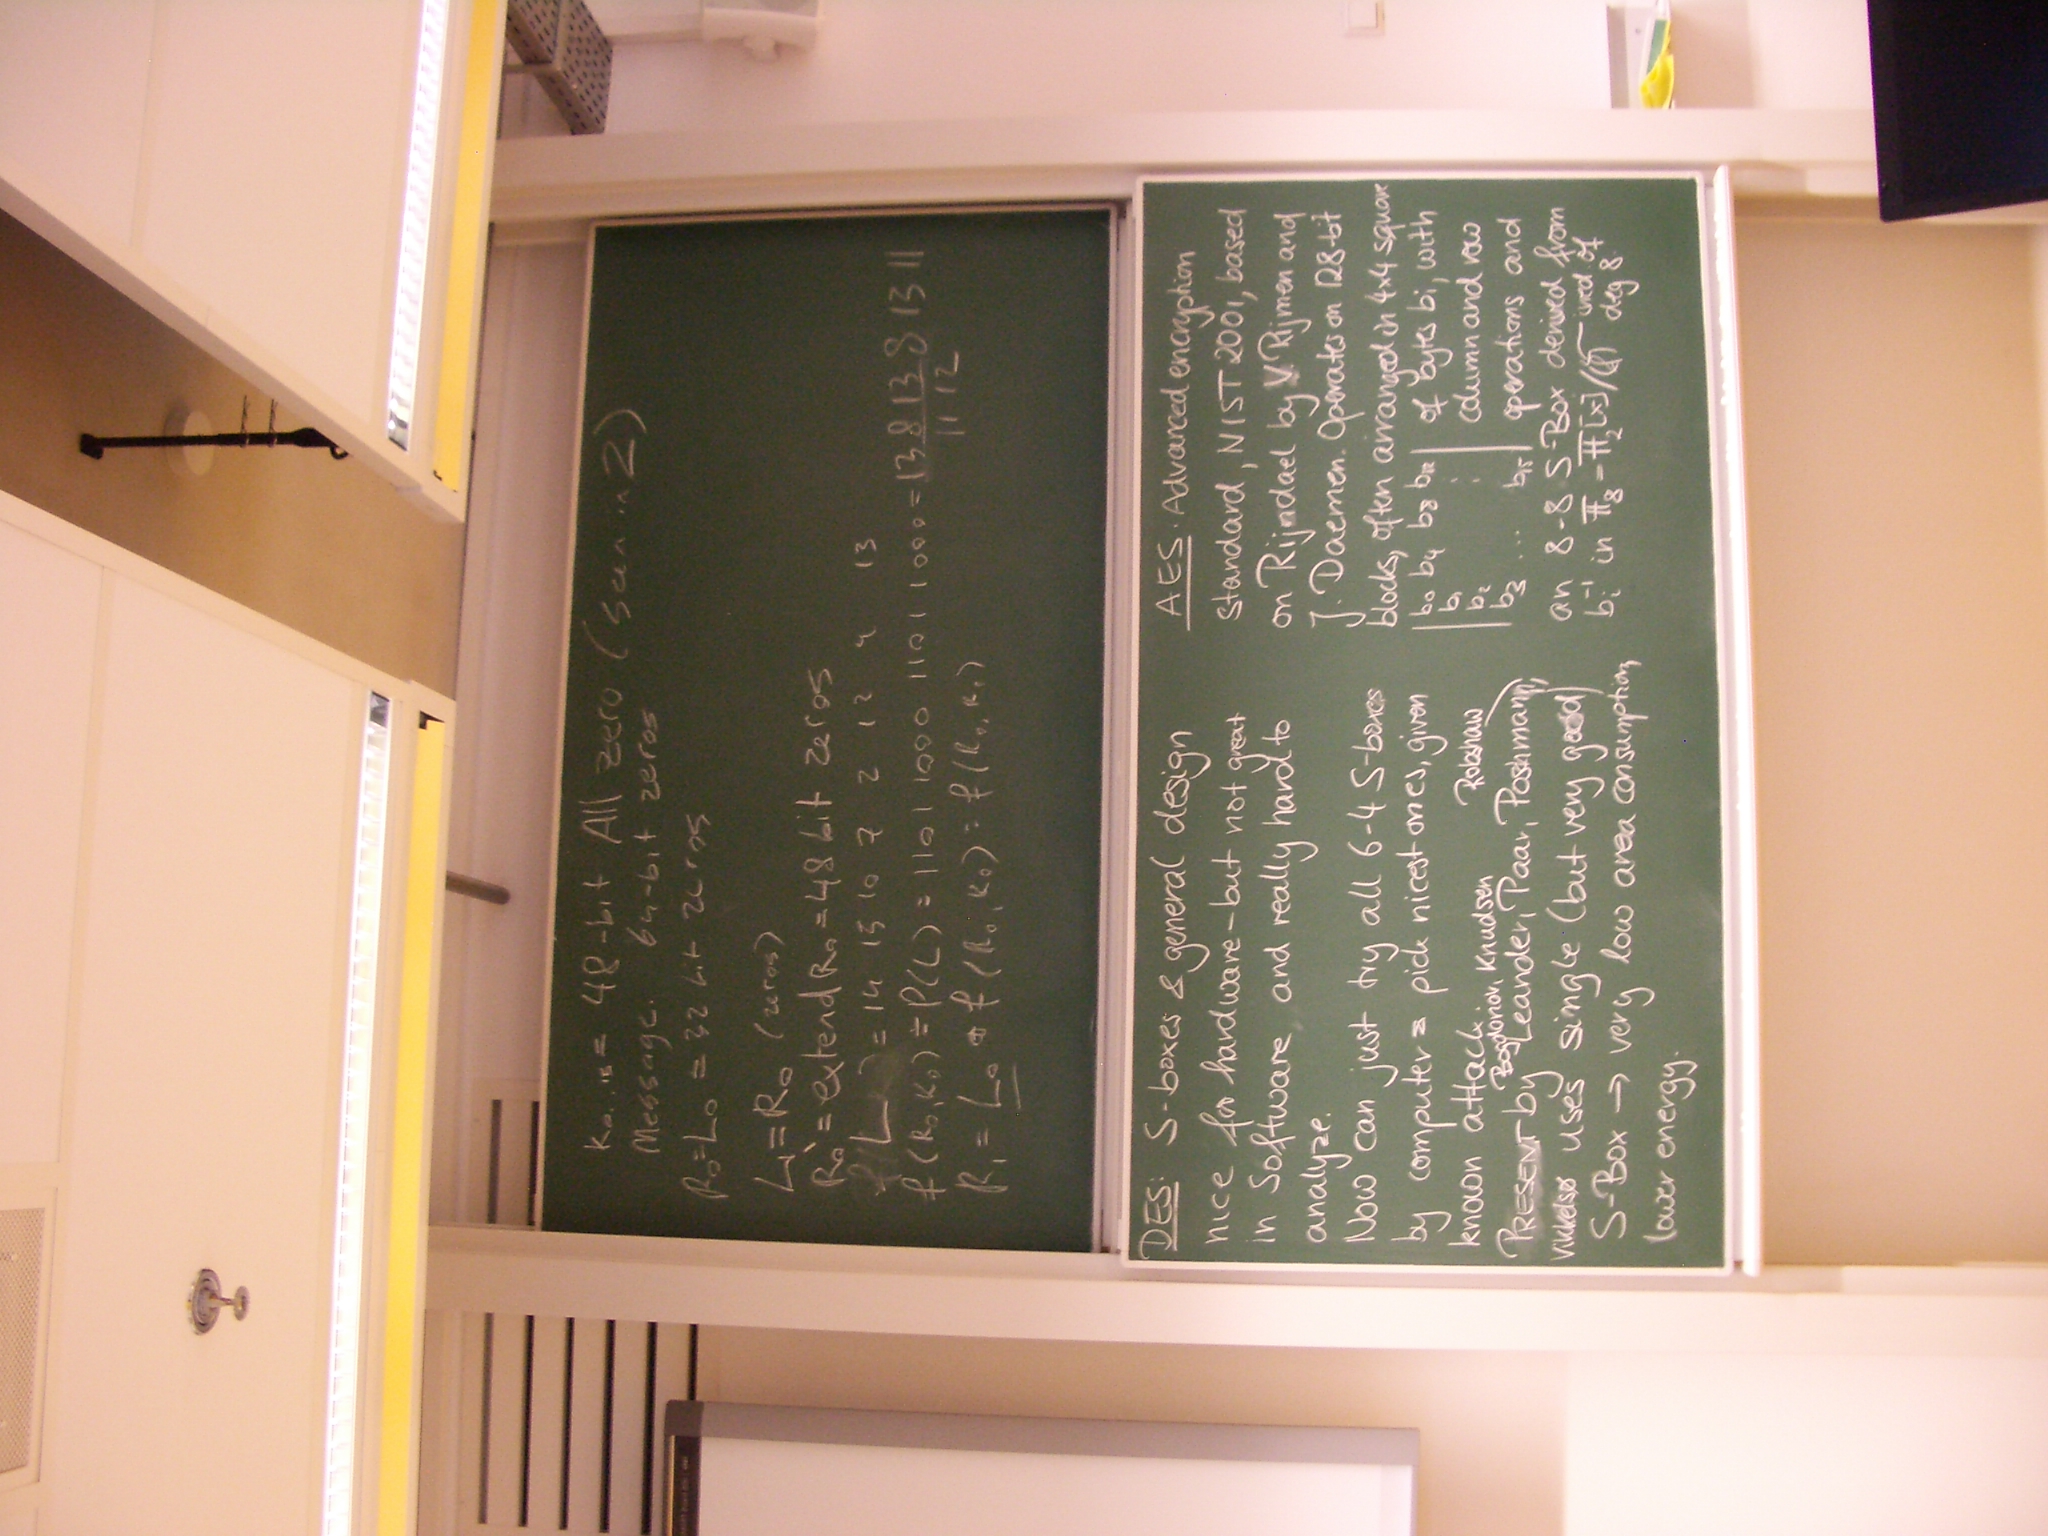 K0..15 = 48-bit All zero (seen in 2)
Message: 64-bit zeros
R0=L0 = 32 bit zeros
L1=R0 (zeros)
R0' = extend R0 = 48 bit zeros
= 14 15 10 7 2 12 4 13
f(R0,K0) = P(L) = 1101 1000 1101 1000 = 13 8 13 8 13 11
11 12
R1 = L0 ⊕ f(R0,K0) = f(R0,K0)
DES: S-boxes & general design
nice for hardware - but not great
in software and really hard to
analyze.
Now can just try all 6-4 S-boxes
by computer & pick nicest ones, given
known attack.
Bogdanov, Knudsen Robshaw
PRESENT by Leander, Paar, Poshmann,
Vikkelsø uses single (but very good)
S-Box → very low area consumption,
lower energy.
AES: Advanced encryption
standard, NIST 2001, based
on Rijndael by V Rijmen and
J. Daemen. Operates on 128 bit
blocks, often arranged in 4x4 square
b0 b4 b8 b12 of bytes bi, with
b1 column and row
b2 operations and
b3 ... b15
an 8-8 S-Box derived from
bi^-1 in F_2^8 = F_2[x]/(f) irred of
deg 8